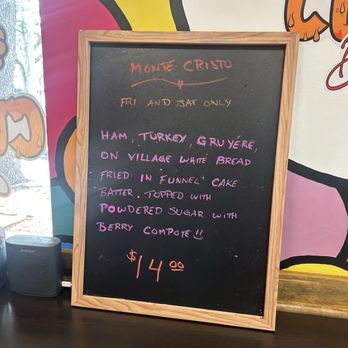 MONTE CRISTO
FRI AND SAT ONLY
HAM, TURKEY, GRUYÉRE,
ON VILLAGE WHITE BREAD
FRIED IN FUNNEL CAKE
BATTER. TOPPED WITH
POWDERED SUGAR WITH
BERRY COMPOTE!!
$14.00